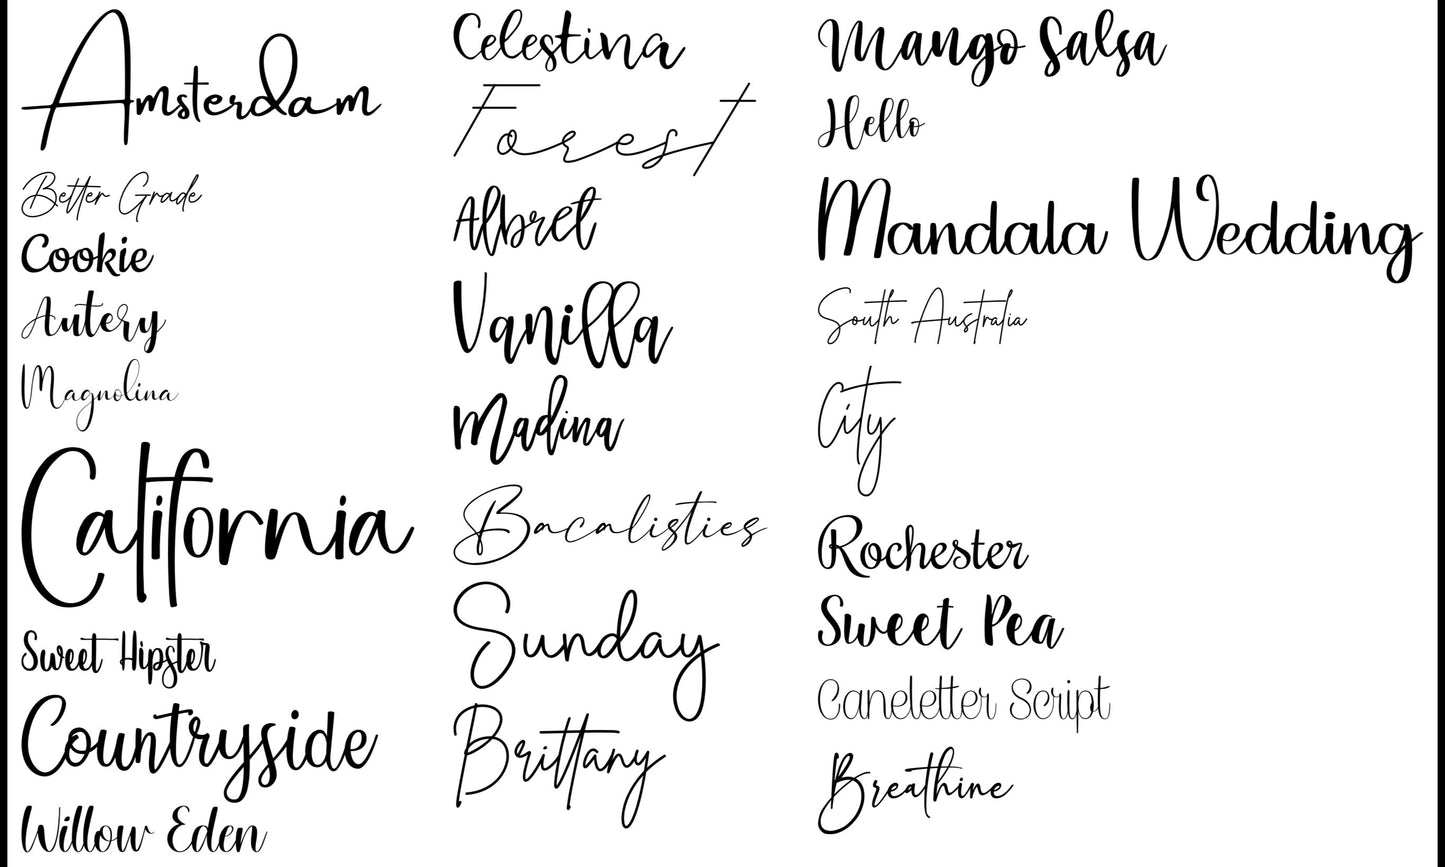 Amsterdam
Better Grade
Cookie
Autery
Magnolina
California
Sweet Hipster
Countryside
Willow Eden
Celestina
Forest
Albret
Vanilla
Madina
Bacalisties
Sunday
Brittany
Mango Salsa
Hello
Mandala Wedding
South Australia
City
Rochester
Sweet Pea
Caneletter Script
Breathine